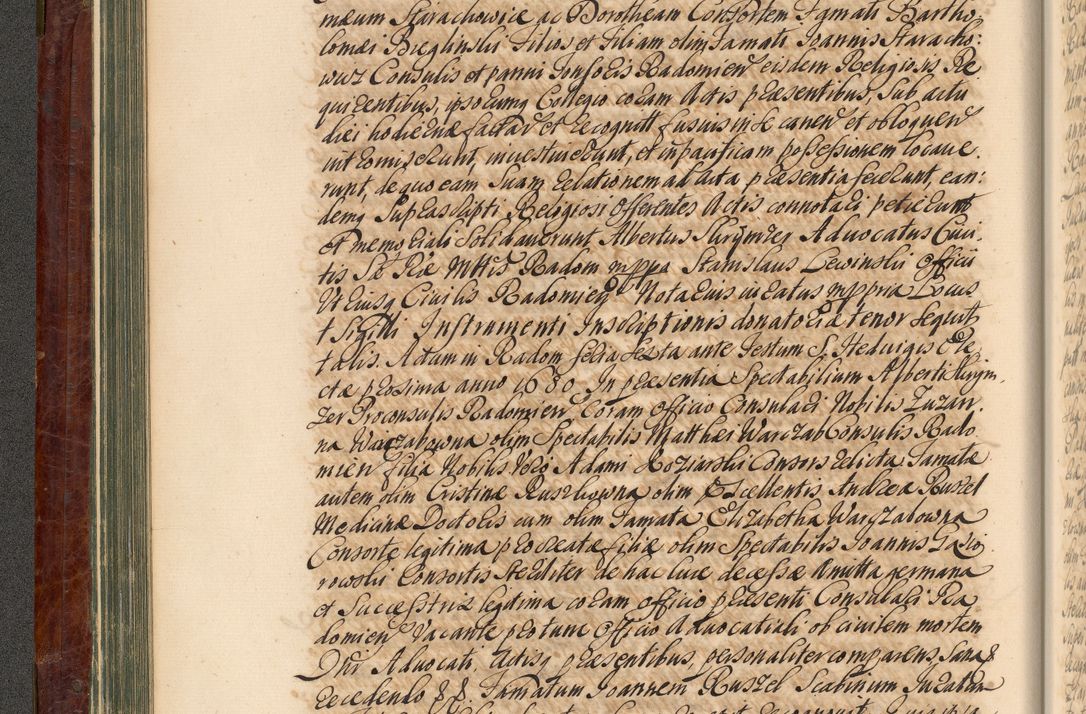 mæum Starachowicz ac Dorotheam Consortem Famati Bartho
lomæi Bieglinski Filios et Filiam olim Famati Joannis Staracho:
wicz Consulis et panni Tonsoris Radomien eisdem Religiosis Re
quirentibus, ipsorumq Collegio coram Actis præsentibus, sub actu
diei hodiernæ factar et recognitt fusius in se canen et obloquen
intromiserunt, investiverunt, et in pacificam possessionem locave.
runt, de quo eam suam relationem ad Acta præsentia fecerunt, ean:
demq supra scripti Religiosi Offerentes Actis connotari petierunt
et memoriali solidaverunt Albertus Skrymzer Advocatus Civi.
tis Sæ Ræ Mttis Radom mppa Stanislaus Lewinski Officii
Utriusq Civilis Radomien Notarius iuratus mppria Locus
t Sigilli Instrumenti Inscriptionis donatoriæ tenor sequit
talis. Actum in Radom feria sexta ante Festum S. Hedvigis Ele
ctæ proxima anno 1680. In præsentia Spectabilium Alberti Skrym.
zer Proconsulis Radomien Coram Officio Consulari Nobilis Zuzan.
na Warczabowna olim Spectabilis Matthæi Warczab Consulis Rado
mien filia Nobilis Vero Adami Koziarski Consors relicta Famatæ
autem olim Cristinæ Ruszkowna olim Excellentis Andreæ Ruszel
Medicinæ Doctoris cum olim Famata Elizabetha Warczabowna
Consorte legitima procreatæ filiæ olim Spectabilis Joannis
rowski Consortis steriliter de hac luce decessæ Amitta germana
et Successtrix legitima coram officio præsenti Consulari Ra
domien Vacante protunc Officio Advocatiali ob civilem mortem
Dni Advocati, Actisq præsentibus, personaliter comparens, sana &
recedendo &. &. Famatum Joannem Ruszel Scabinum Juratum